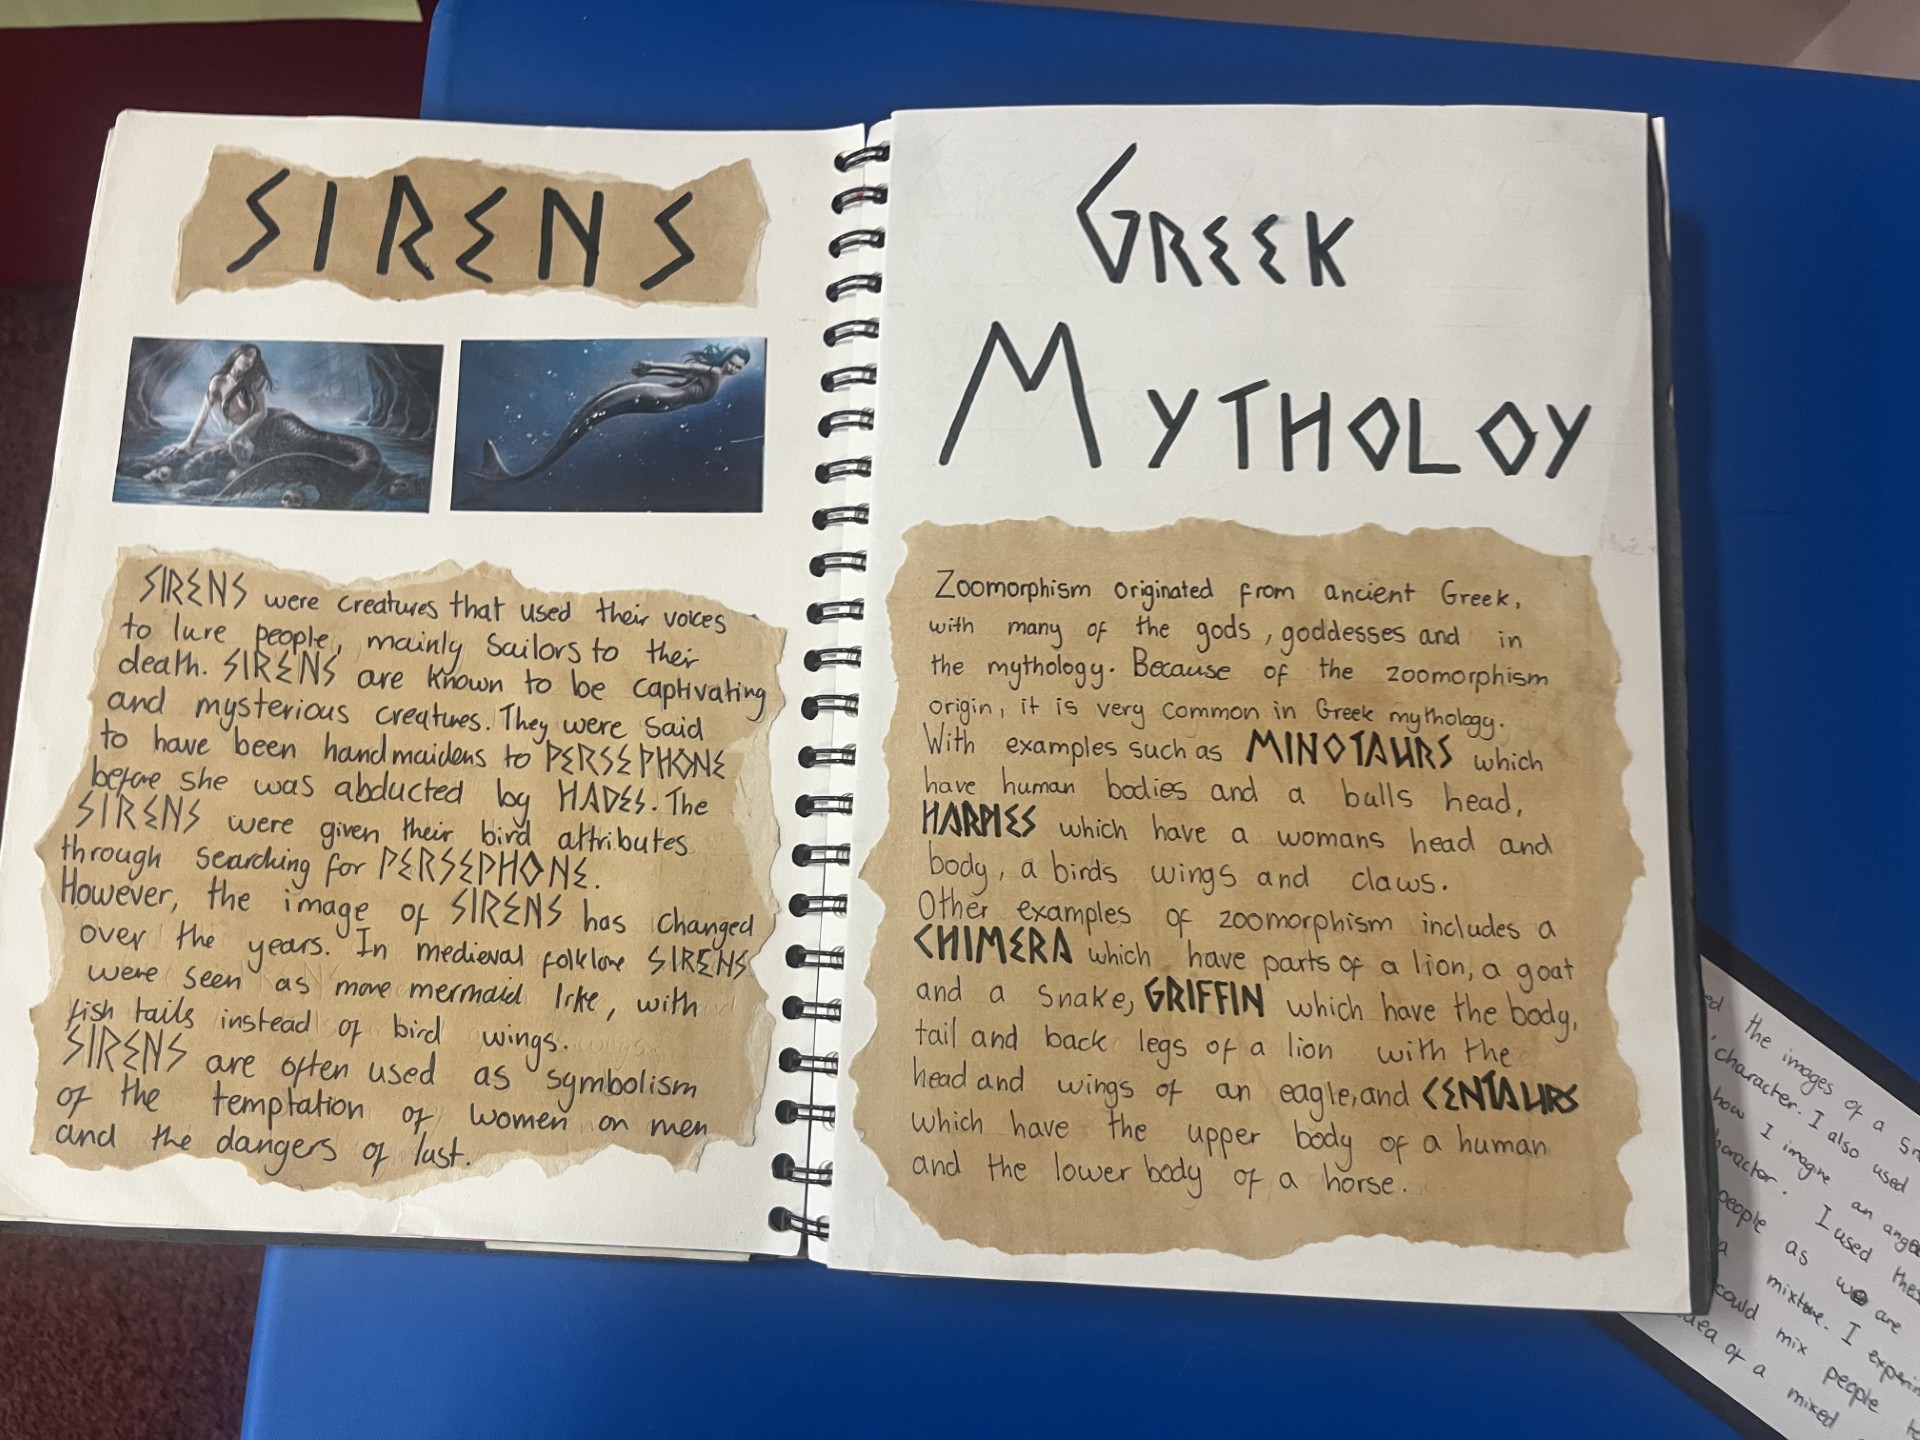 SIRENS
SIRENS were creatures that used their voices
to lure people, mainly sailors to their
death. SIRENS are known to be captivating
and mysterious creatures. They were said
to have been handmaidens to PERSEPHONE
before she was abducted by HADES. The
SIRENS were given their bird attributes
through searching for PERSEPHONE.
However, the image of SIRENS has changed
over the years. In medieval folklore SIRENS
were seen as more mermaid like, with
fish tails instead of bird wings.
SIRENS are often used as symbolism
of the temptation of women on men
and the dangers of lust.
GREEK
MYTHOLOY
Zoomorphism originated from ancient Greek,
with many of the gods, goddesses and in
the mythology. Because of the zoomorphism
origin, it is very common in Greek mythology.
With examples such as MINOTAURS which
have human bodies and a bulls head,
HARPIES which have a womans head and
body, a birds wings and claws.
Other examples of zoomorphism includes a
CHIMERA which have parts of a lion, a goat
and a snake, GRIFFIN which have the body,
tail and back legs of a lion with the
head and wings of an eagle, and CENTAURS
which have the upper body of a human
and the lower body of a horse.
the images of a
character. I also used
how I imagine an
I used
people as we are
a mixture. I
could mix people
idea of a mixed